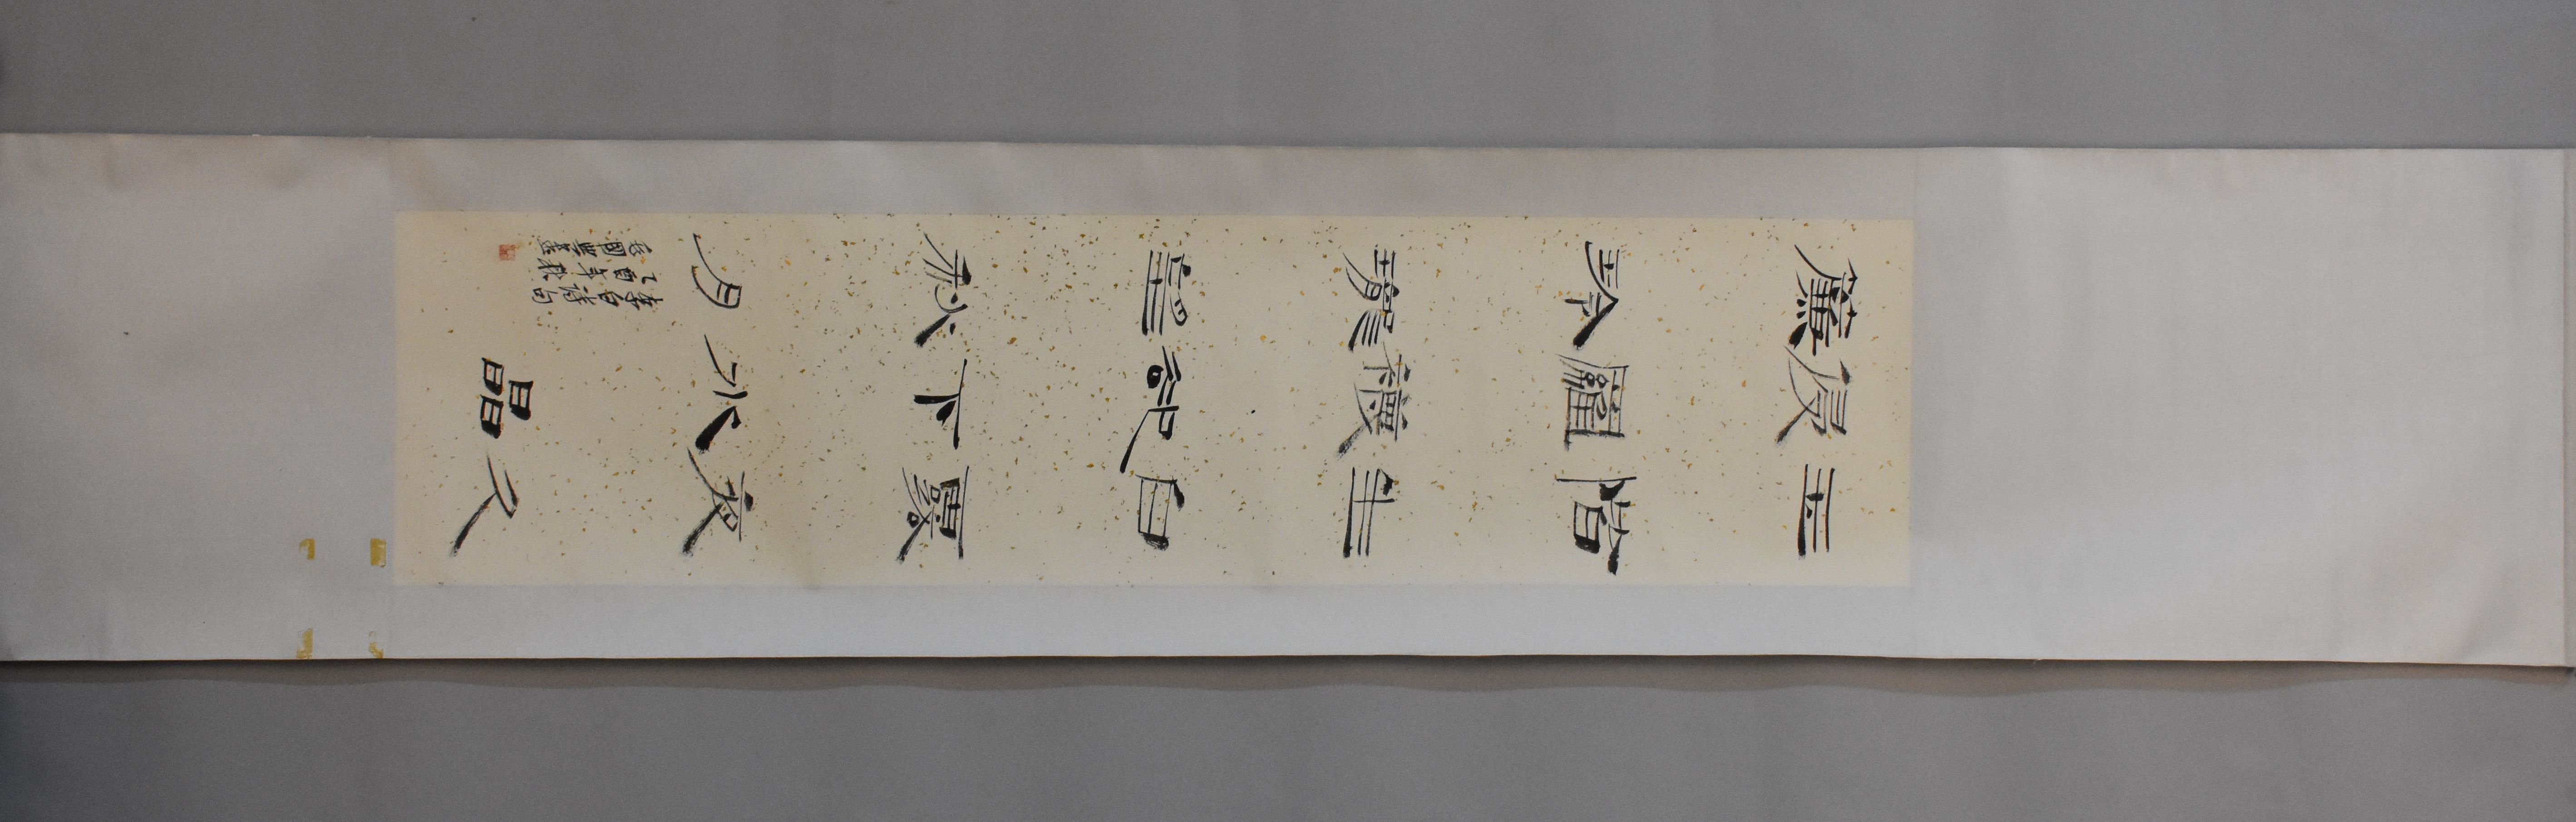 玉階生白露夜久
侵羅襪卻下水晶
簾玲瓏望秋月
李白詩句
乙酉年秋
國豐書